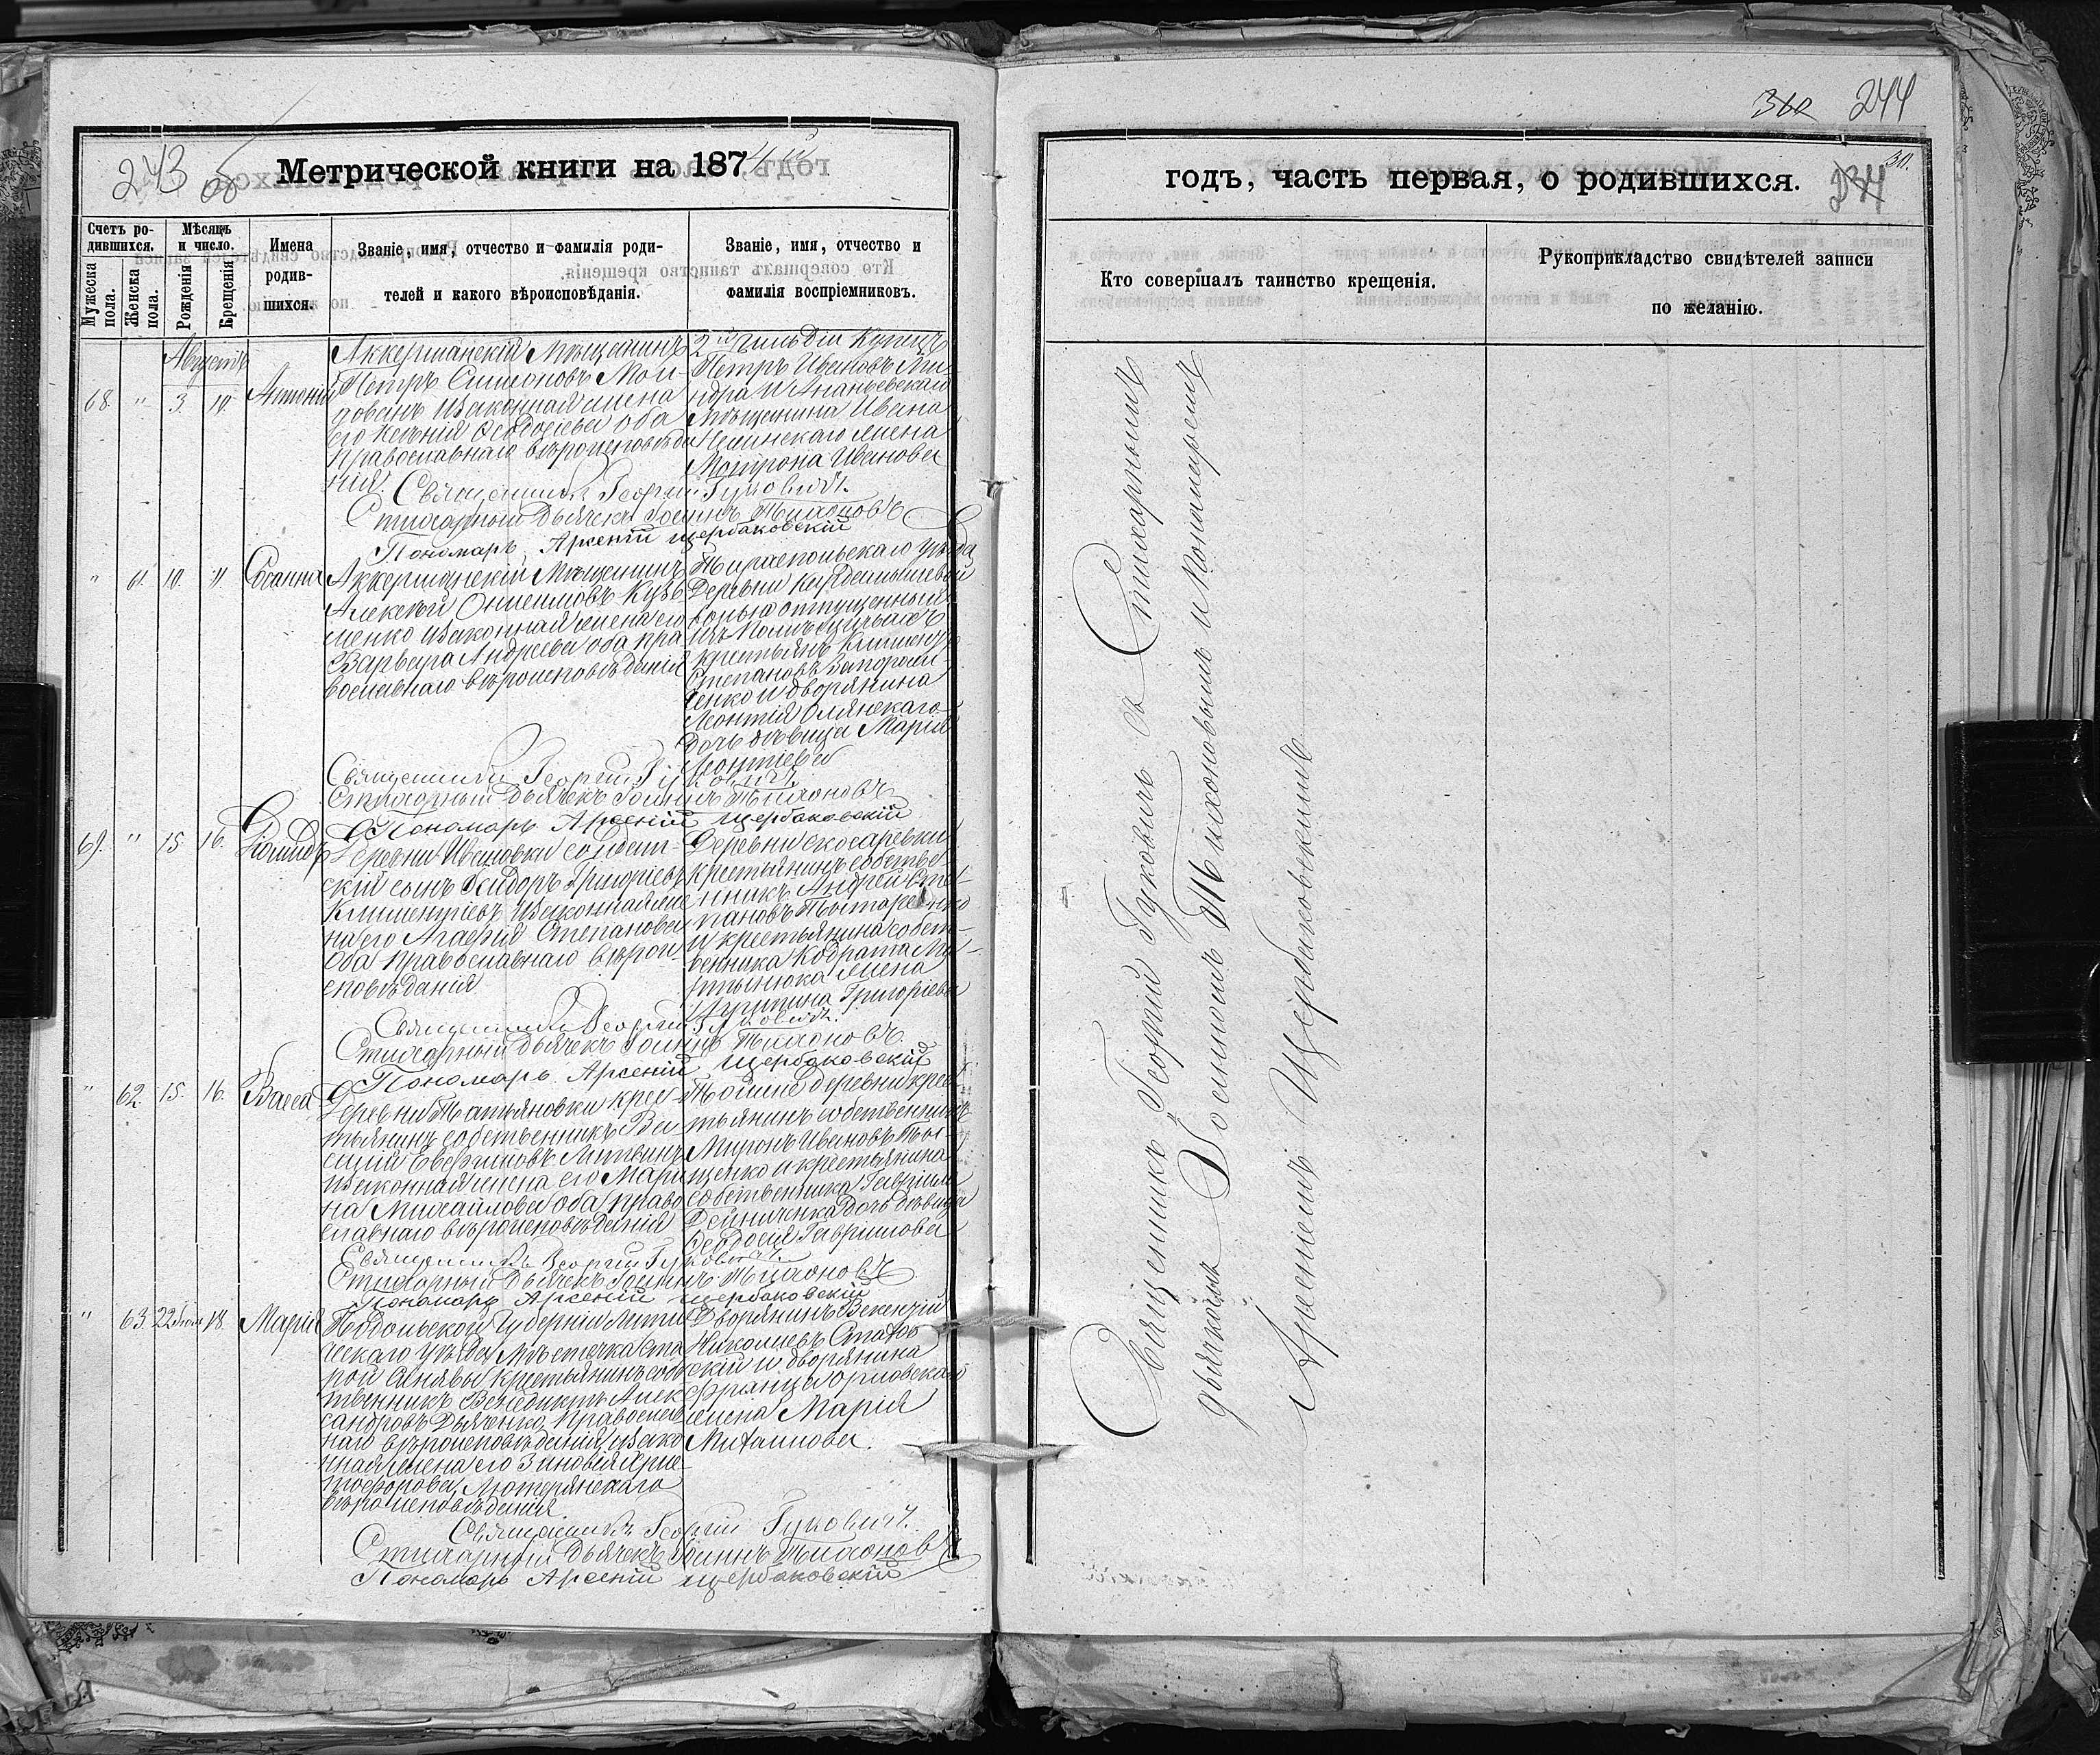 243 об
Метрической книги на 1874 й
Счетъ ро-
дившихся.
Мужеска
пола.
Женска
пола.
Мѣсяцъ
и число.
Рожденія
Крещенія
Имена
родив-
шихся.
Званіе, имя, отчество и фамилія роди-
телей и какого вѣроисповѣданія.
Званіе, имя, отчество и
фамилія воспріемниковъ.
Августъ
68. " 3. 10. Антоній
Аккерманскій Мѣщанинъ
Петръ Симоновъ Мол-
дованъ и законная жена
его Ксенія Ѳеодорова оба
православнаго вѣроисповѣда
нія.
2й гильдіи Купецъ
Петръ Ивановъ Ми-
ндра и Ананьевскаго
Мѣщанина Ивана
жена
Мотрона Иванова
Священникъ Георгій Гуковичъ.
Стихарный Дьячекъ Іоаннъ Тихоновъ
Пономарь Арсеній Щербаковскій
" 61. 10. 11. Сосанна
Аккерманскій Мѣщанинъ
Алексѣй Онисимовъ Кузь
менко и законная жена его
Варвара Андреева оба пра
вославнаго вѣроисповѣданія
Тираспольскаго уѣзда
Деревни
вольно отпущенный
крестьянъ Климентъ
Степановъ Запорож
ченко и дворянина
Леонтія Олянскаго
дочь дѣвица Марія
Леонтіева
Священникъ Георгій Гуковичъ.
Стихарный Дьячекъ Іоаннъ Тихоновъ
Пономарь Арсеній Щербаковскій
69. " 15. 16. Діомидъ
Деревни Ивановки солдат-
скій сынъ Исидоръ Григоріевъ
Климентіевъ и законная же
на его Агафія Степанова
оба православнаго вѣрои-
сповѣданія
Деревни скосаревки
крестьянинъ собстве
нникъ Андрей Сте-
пановъ Титаренко
и крестьянина собст-
венника Кодрата Ма-
ртынюка жена
Григоріева
Священникъ Георгій Гуковичъ.
Стихарный Дьячекъ Іоаннъ Тихоновъ.
Пономарь Арсеній Щербаковскій
" 62. 15. 16. Васса
Деревни Татьяновки крес-
тьянинъ собственникъ Ва-
силій Евфимовъ Литвинъ
и законная жена его Мари
на Михайлова оба право
славнаго вѣроисповѣданія
Той же деревни крес-
тьянинъ собственникъ
Миронъ Ивановъ
и крестьянина
собственника Гавріила
Дейниченка дочь дѣвица
Ѳеодосія Гавріилова
Священникъ Георгій Гуковичъ.
Стихарный Дьячекъ Іоаннъ Тихоновъ
Пономарь Арсеній Щербаковскій
" 63. 22 Іюля 18. Марія
Подольской Губерніи Лити
ческаго уѣзда Мѣстечка Ста
рой Синявы крестьянинъ собс
твенникъ Венедиктъ Алек
сандровъ Дьяченко, православ
наго вѣроисповѣданія, и зако
нная жена его Зиновія Хрис
тофорова, Лютеранскаго
вѣроисповѣданія.
Дворянинъ Викентій
Николаевъ
скій и дворянина
Франца Орловскаго
жена Марія
Михайлова.
Священникъ Георгій Гуковичъ.
Стихарный Дьячекъ Іоаннъ Тихоновъ
Пономарь Арсеній Щербаковскій
310 244
годъ, часть первая, о родившихся.
234
30.
Кто совершалъ таинство крещенія.
Рукоприкладство свидѣтелей записи
по желанію.
Священникъ Георгій Гуковичъ съ Стихарнымъ
дьячкомъ Іоанномъ Тихоновымъ и Пономаремъ
Арсеніемъ Щербаковскимъ